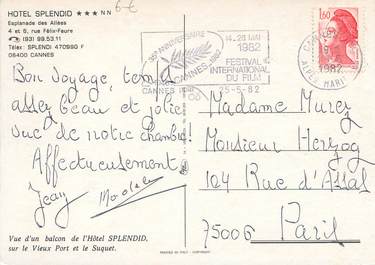 HOTEL SPLENDID ★★★ NN
Esplanade des Allées
4 et 6, rue Félix-Faure
(93) 99.53.11
Télex : SPLENDI 470990 F
06400 CANNES
6€
35e ANNIVERSAIRE
CANNES 1982
14-26 MAI
1982
FESTIVAL
INTERNATIONAL
DU FILM
25-5-82
1,60
1982
ALPES MARIT
Bon voyage, temps
assez beau et jolie
vue de notre chambre
Affectueusement
Jean
Madame Murez
Monsieur Herzog
104 Rue d'Assas
75006 Paris
Vue d'un balcon de l'Hôtel SPLENDID,
sur le Vieux Port et le Suquet.